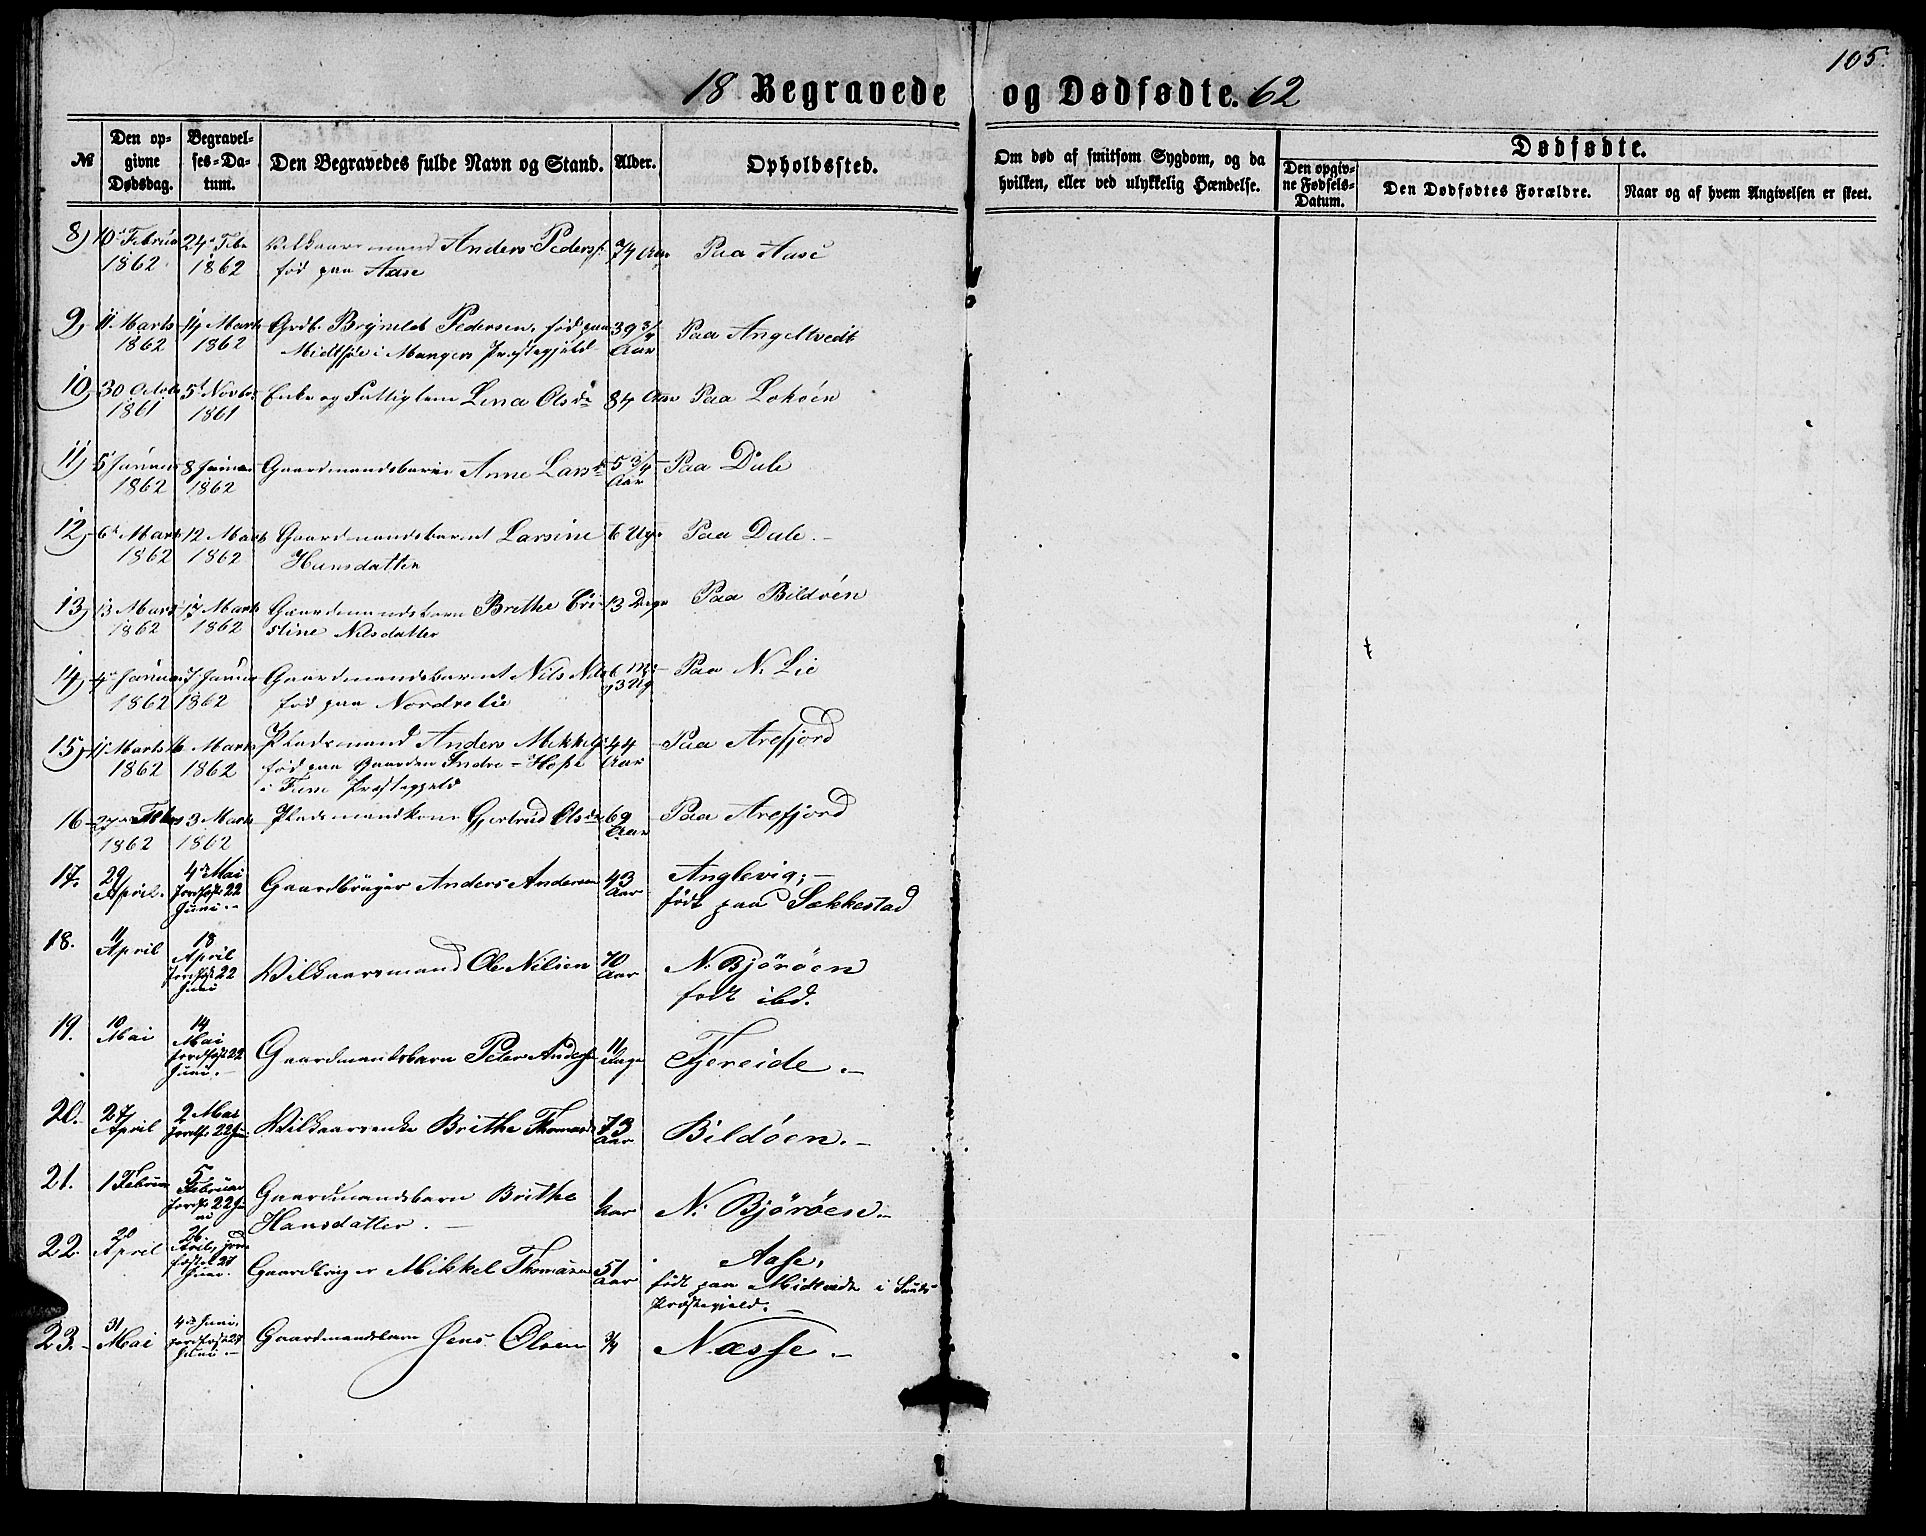 105.
18 Begravede og Dødfødte. 62
№
Den opgivne Dødsdag.
Begravelses-Datum.
Den Begravedes fulde Navn og Stand.
Alder.
Opholdssted.
Om død af smitsom Sygdom, og da hvilken, eller ved ulykkelig Hændelse.
Dødfødte.
Den opgivne Fødsels-Datum.
Den Dødfødtes Forældre.
Naar og af hvem Angivelsen er skeet.
8) 10 Februar 24 Feb Vilkaarsmand Anders Peders. 74 Aar Paa Aase
1862 1862 fød paa Aase
9, 11 Marts 14 Marts Grdb. Brynild Pedersen, fød paa 39 3/4 Paa Angeltvedt
1862 1862 Midtsøe i Mangers Præstegjeld Aar
10) 30 Octob 5t Novbr Enke og Fattiglem Lina Olsdr 84 Aar Paa Lokøen
1861 1861
11) 5 Januar 8 Januar Gaardmandsbarn Anne Larsd 5 3/4 Paa Dale
1862 1862 Aar
12, 6 Marts 12 Marts Gaardmandsbarnet Larsine 6 Ug. Paa Dale.
1862 1862 Hansdatter
13) 13 Marts 17 Marts Gaardmandsbarn Brithe Cri- 13 Dage Paa Bildøen
1862 1862 stine Nilsdatter
14) 4 Januar 7 Januar Gaardmandsbarnet Nils Nils 6 M. Paa N. Lie
1862 1862 fød paa Nordre Lie 3 Ug
15) 11 Marts 16 Marts Pladsmand Anders Mikkels. 44 Paa Arefjord
1862 1862 fød paa Gaarden Indre-Hope Aar
i Præstegjeld
16 27 Febr 3 Marts Pladsmandkone Gjertrud Olsdr 69 Paa Arefjord
1862 1862 Aar
17. 29 April. 4de Mai Jordfæst 22 Juni. Gaardbruger Anders Andersen 43 Aar Anglevig;
født paa Sækkestad
18. 11 April 18 April Jordfæst 22 Juni Vilkaarsmand Ole Nilsen 70 Aar N. Bjørøen
født ibd.
19. 10 Mai 14 Mai Jordfæst 22 Juni. Gaardmandsbarn Peter Anders. 11 Dage Fjereide.
20. 27 April 2 Mai Jordf. 22 Juni Vilkaarsenke Brithe Thomasd 73 Aar Bildøen.
21. 1 Februar 5 Februar Jordf. 22 Juni Gaardmandsbarn Brithe Aar N. Bjørøen
Hansdatter.
22. 20 April 26. April, jordfæstet 27 Juni. Gaardbruger Mikkel Thomasen 51 Aar Aase,
født paa Midtvedt i Sunds
Præstegjeld.
23. 31 Mai 4de Juni, Jordfæst 27 Juni Gaardmandsbarn Jens Olsen 3/4 Næsse.